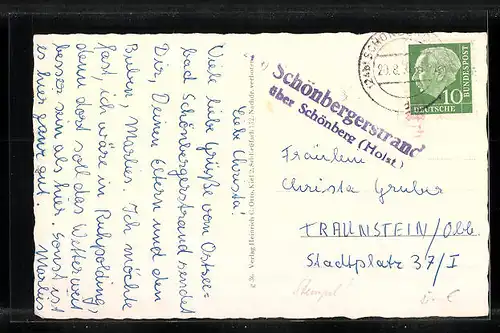 Liebe Christa!
Viele liebe Grüße vom Ostsee=
bad Schönbergerstrand sendet
Dir, Deinen Eltern und den
Buben, Marlies. Ich möchte
fast, ich wäre in Ruhpolding,
denn dort soll das Wetter weit
besser sein als hier. Sonst ist
es hier ganz gut. Marlies
Verlag Heinrich C. Otto, Kiel
Schönbergerstrand
über Schönberg (Holst.)
DEUTSCHE
BUNDESPOST
10
Fräulein
Christa Gruber
TRAUNSTEIN/Obb.
Stadtplatz 37/I
Stempel!